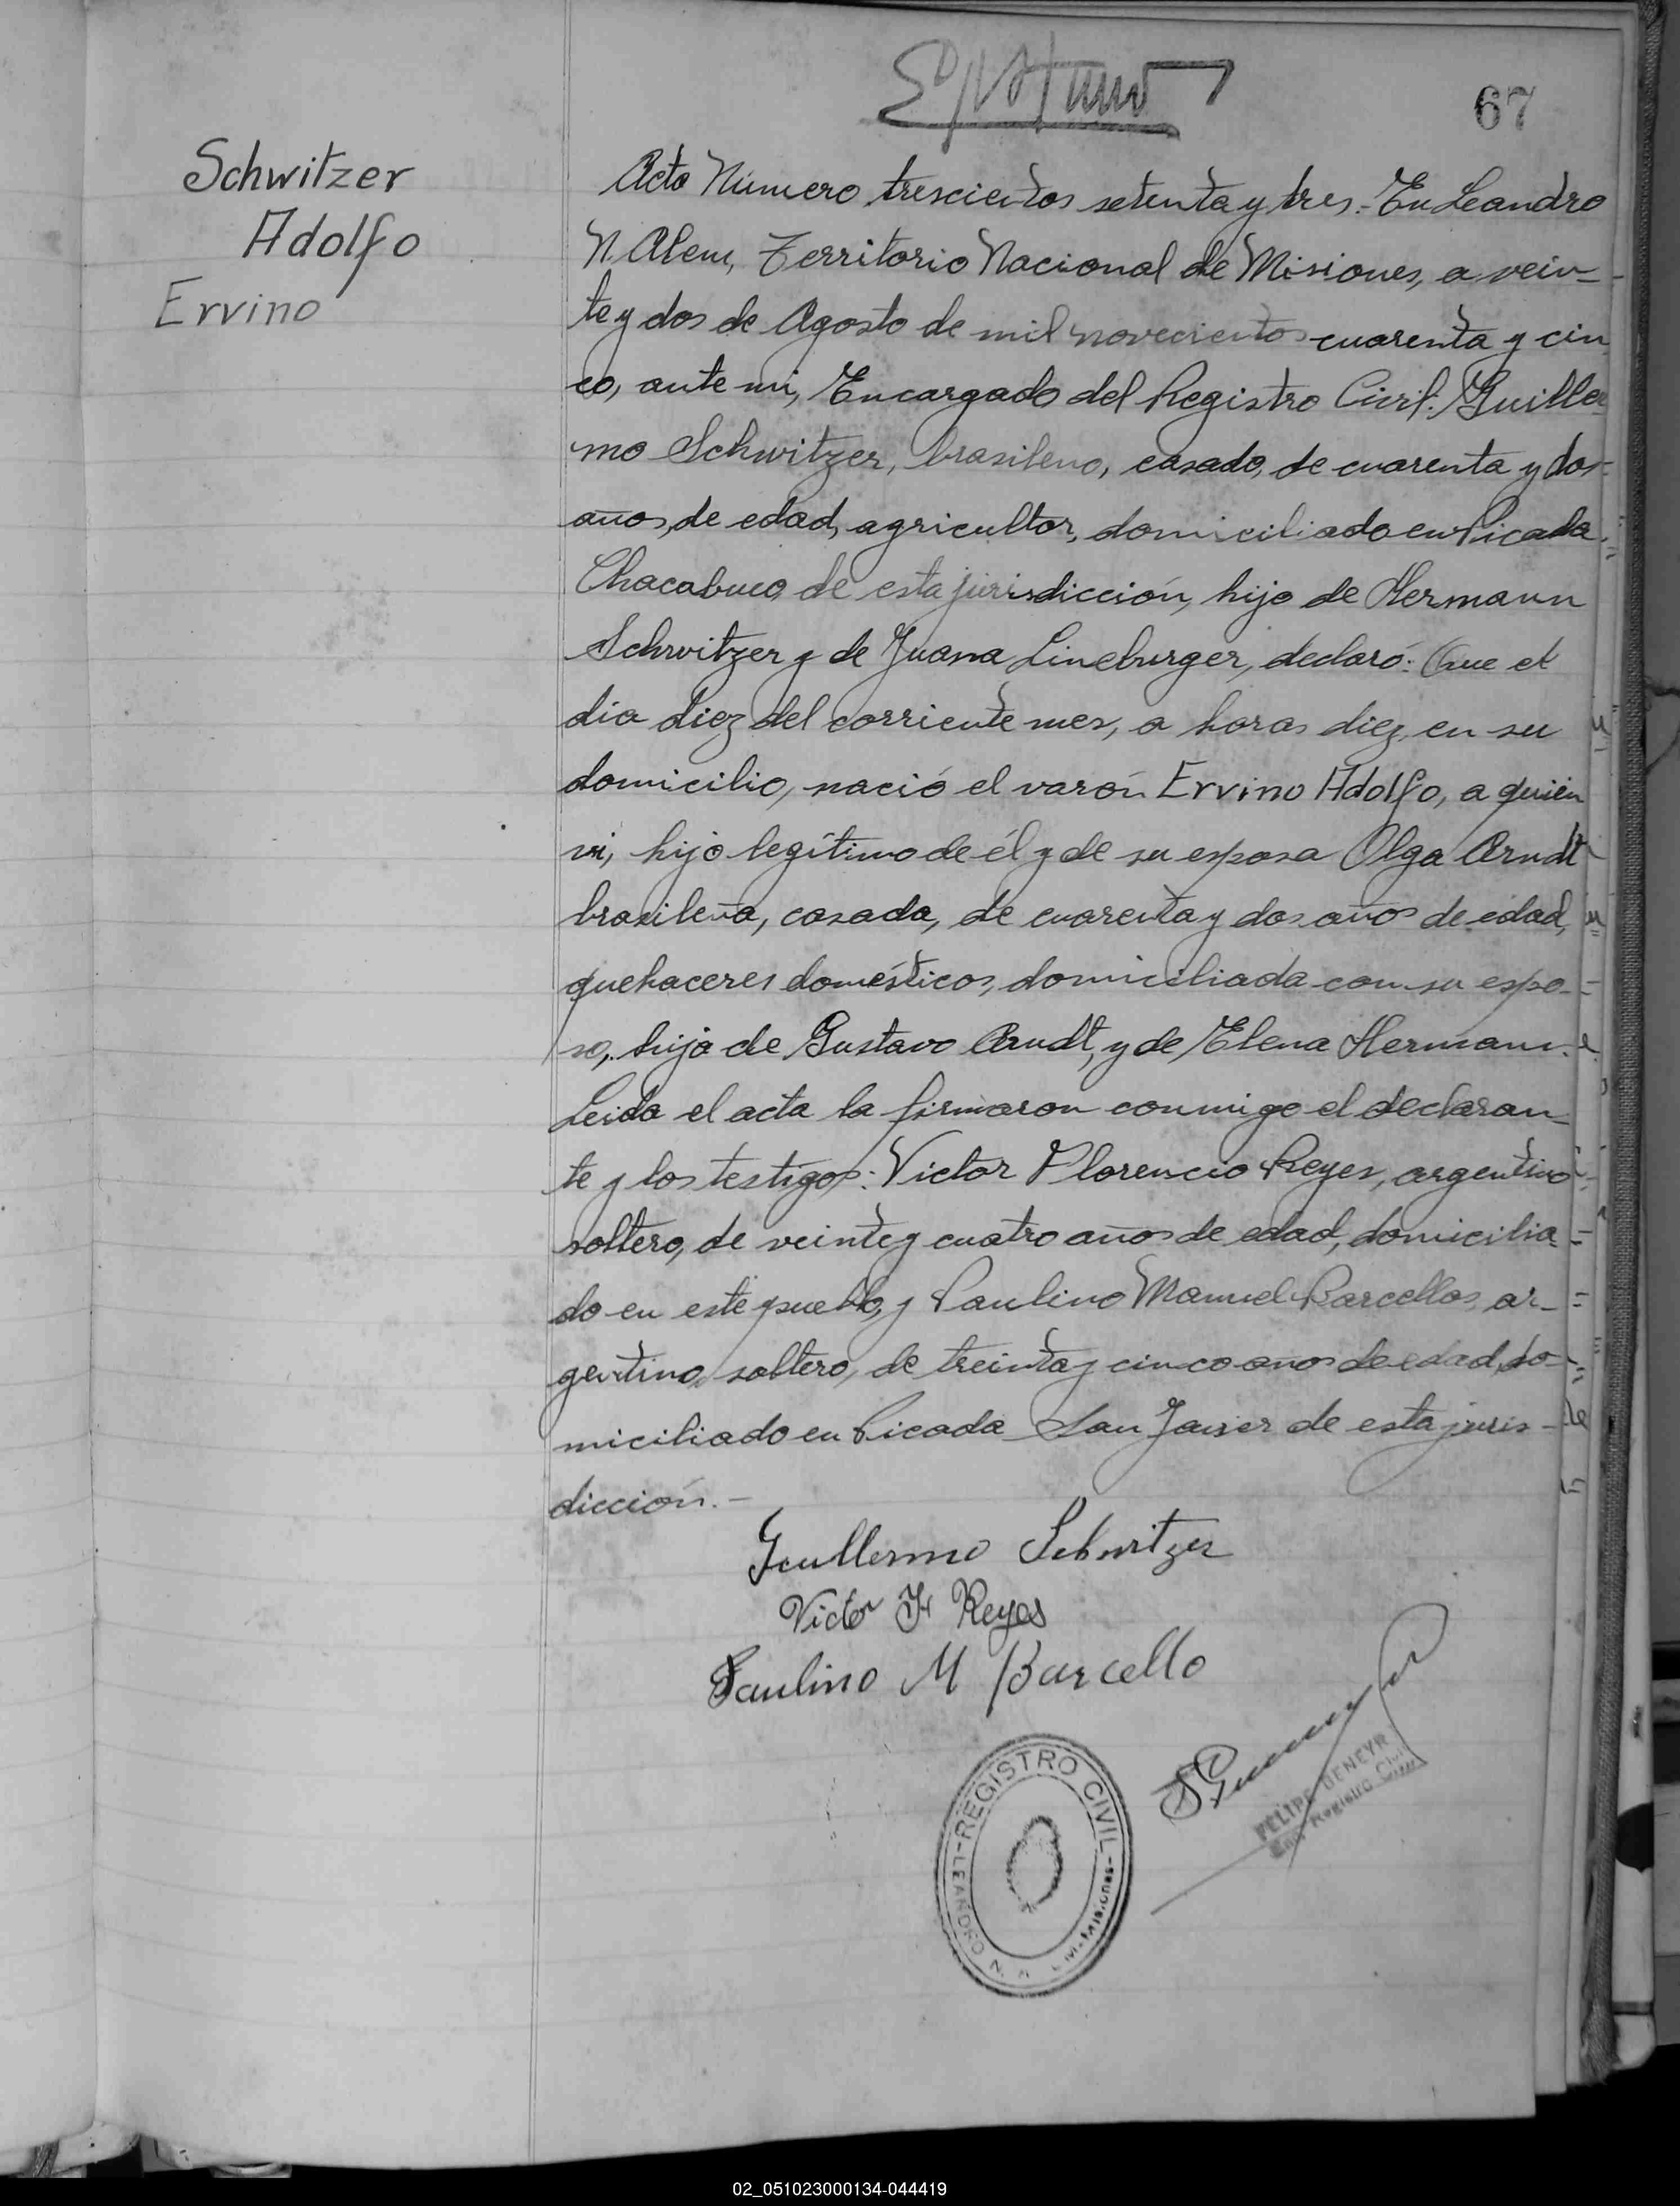 67
Schwitzer
Adolfo
Ervino
Acta Número trescientos setenta y tres.- En Leandro
N. Alem, Territorio Nacional de Misiones, a vein-
te y dos de Agosto de mil novecientos cuarenta y cin
co, ante mi, Encargado del Registro Civil: Guiller
mo Schwitzer, brasileno, casado, de cuarenta y dos
años, de edad, agricultor, domiciliado en Picada
Chacabuco de esta jurisdicción, hijo de Hermann
Schwitzer y de Juana Lineburger, declaró: Que el
día diez del corriente mes, a horas diez, en su
domicilio, nació el varón Ervino Adolfo, a quién
vi, hijo legítimo de él y de su esposa Olga Arndt
brasileña, casada, de cuarenta y dos años de edad,
quehaceres domésticos, domiciliada con su espo-
so, hija de Gustavo Arndt, y de Elena Hermann.
Leida el acta la firmaron conmigo el declaran-
te y los testigos: Victor Florencio Reyes, argentino
soltero, de veinte y cuatro años de edad, domicilia-
do en este pueblo, y Paulino Manuel Barcellos, ar-
gentino, soltero, de treinta y cinco años de edad, do-
miciliado en Picada San Javier de esta juris-
dicción.-
Guillermo Schwitzer
Victor F Reyes
Paulino M Barcello
REGISTRO CIVIL
LEANDRO N. A
Misiones
FELIPE
Registro Civil
02_051023000134-044419